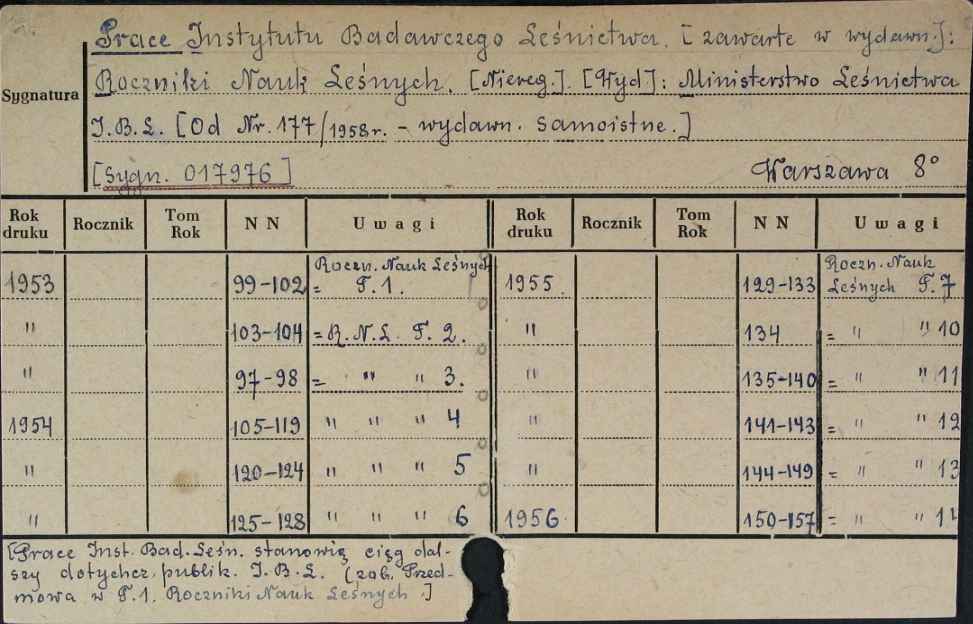 Prace Instytutu Badawczego Leśnictwa. [zawarte w wydawn.]:
Sygnatura Roczniki Nauk Leśnych. [Niereg.]. [Wyd]: Ministerstwo Leśnictwa
I.B.L. [Od Nr. 177/1958r. - wydawn. samoistne.]
[Sygn. 017976] Warszawa 8°
Rok druku Rocznik Tom Rok N N Uwagi Rok druku Rocznik Tom Rok N N Uwagi
1953 99-102 = Roczn. Nauk Leśnych T.1. 1955 129-133 Roczn. Nauk Leśnych T.7
" 103-104 = R.N.L. T. 2. " 134 = " " 10
" 97-98 = " " 3. " 135-140 = " " 11
1954 105-119 " " " 4 " 141-143 = " " 12
" 120-124 " " " 5 " 144-149 = " " 13
" 125-128 " " " 6 1956 150-157 = " "
[Prace Inst. Bad. Leśn. stanowią ciąg dal-
szy dotychcz. publik. I.B.L. (zob. Przed-
mowa w T.1. Roczniki Nauk Leśnych.]